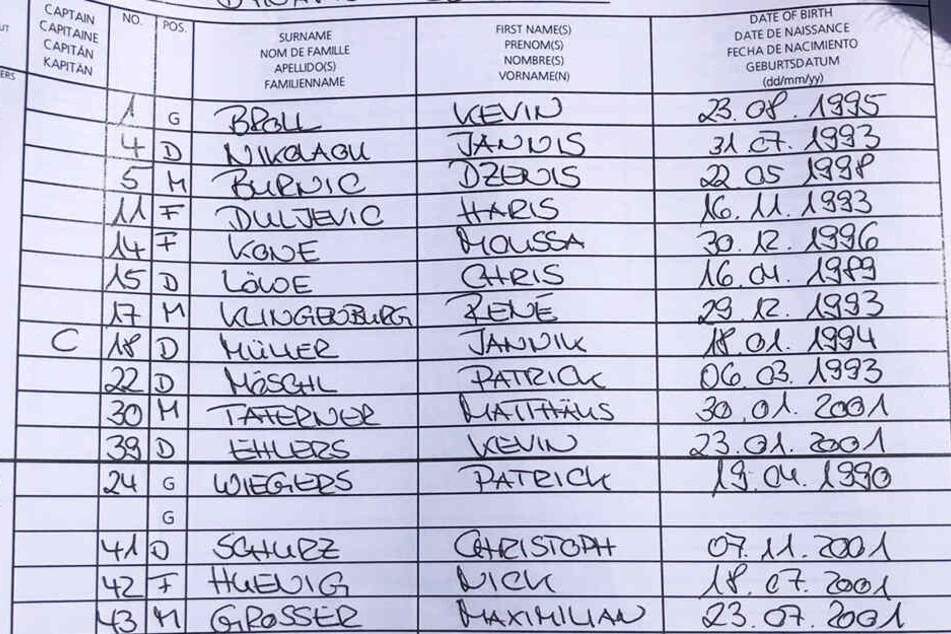 CAPTAIN CAPITAINE CAPITÁN KAPITÄN NO. POS. SURNAME NOM DE FAMILLE APELLIDO(S) FAMILIENNAME FIRST NAME(S) PRENOM(S) NOMBRE(S) VORNAME(N) DATE OF BIRTH DATE DE NAISSANCE FECHA DE NACIMIENTO GEBURTSDATUM (dd/mm/yy)
1 G BROLL KEVIN 23.08.1995
4 D NIKOLAOU JANNIS 31.07.1993
5 M BURNIC DZENIS 22.05.1998
11 F DULJEVIC HARIS 16.11.1993
14 F KONE MOUSSA 30.12.1996
15 D LÖWE CHRIS 16.04.1989
17 M KLINGENBURG RENÉ 29.12.1993
C 18 D MÜLLER JANNIK 18.01.1994
22 D MÖSCHL PATRICK 06.03.1993
30 M TAFERNER MATTHÄUS 30.01.2001
39 D EHLERS KEVIN 23.01.2001
24 G WIEGERS PATRICK 19.04.1990
G
41 D SCHURZ CHRISTOPH 07.11.2001
42 F HUENIG NICK 18.07.2001
43 M GROSSER MAXIMILIAN 23.07.2001